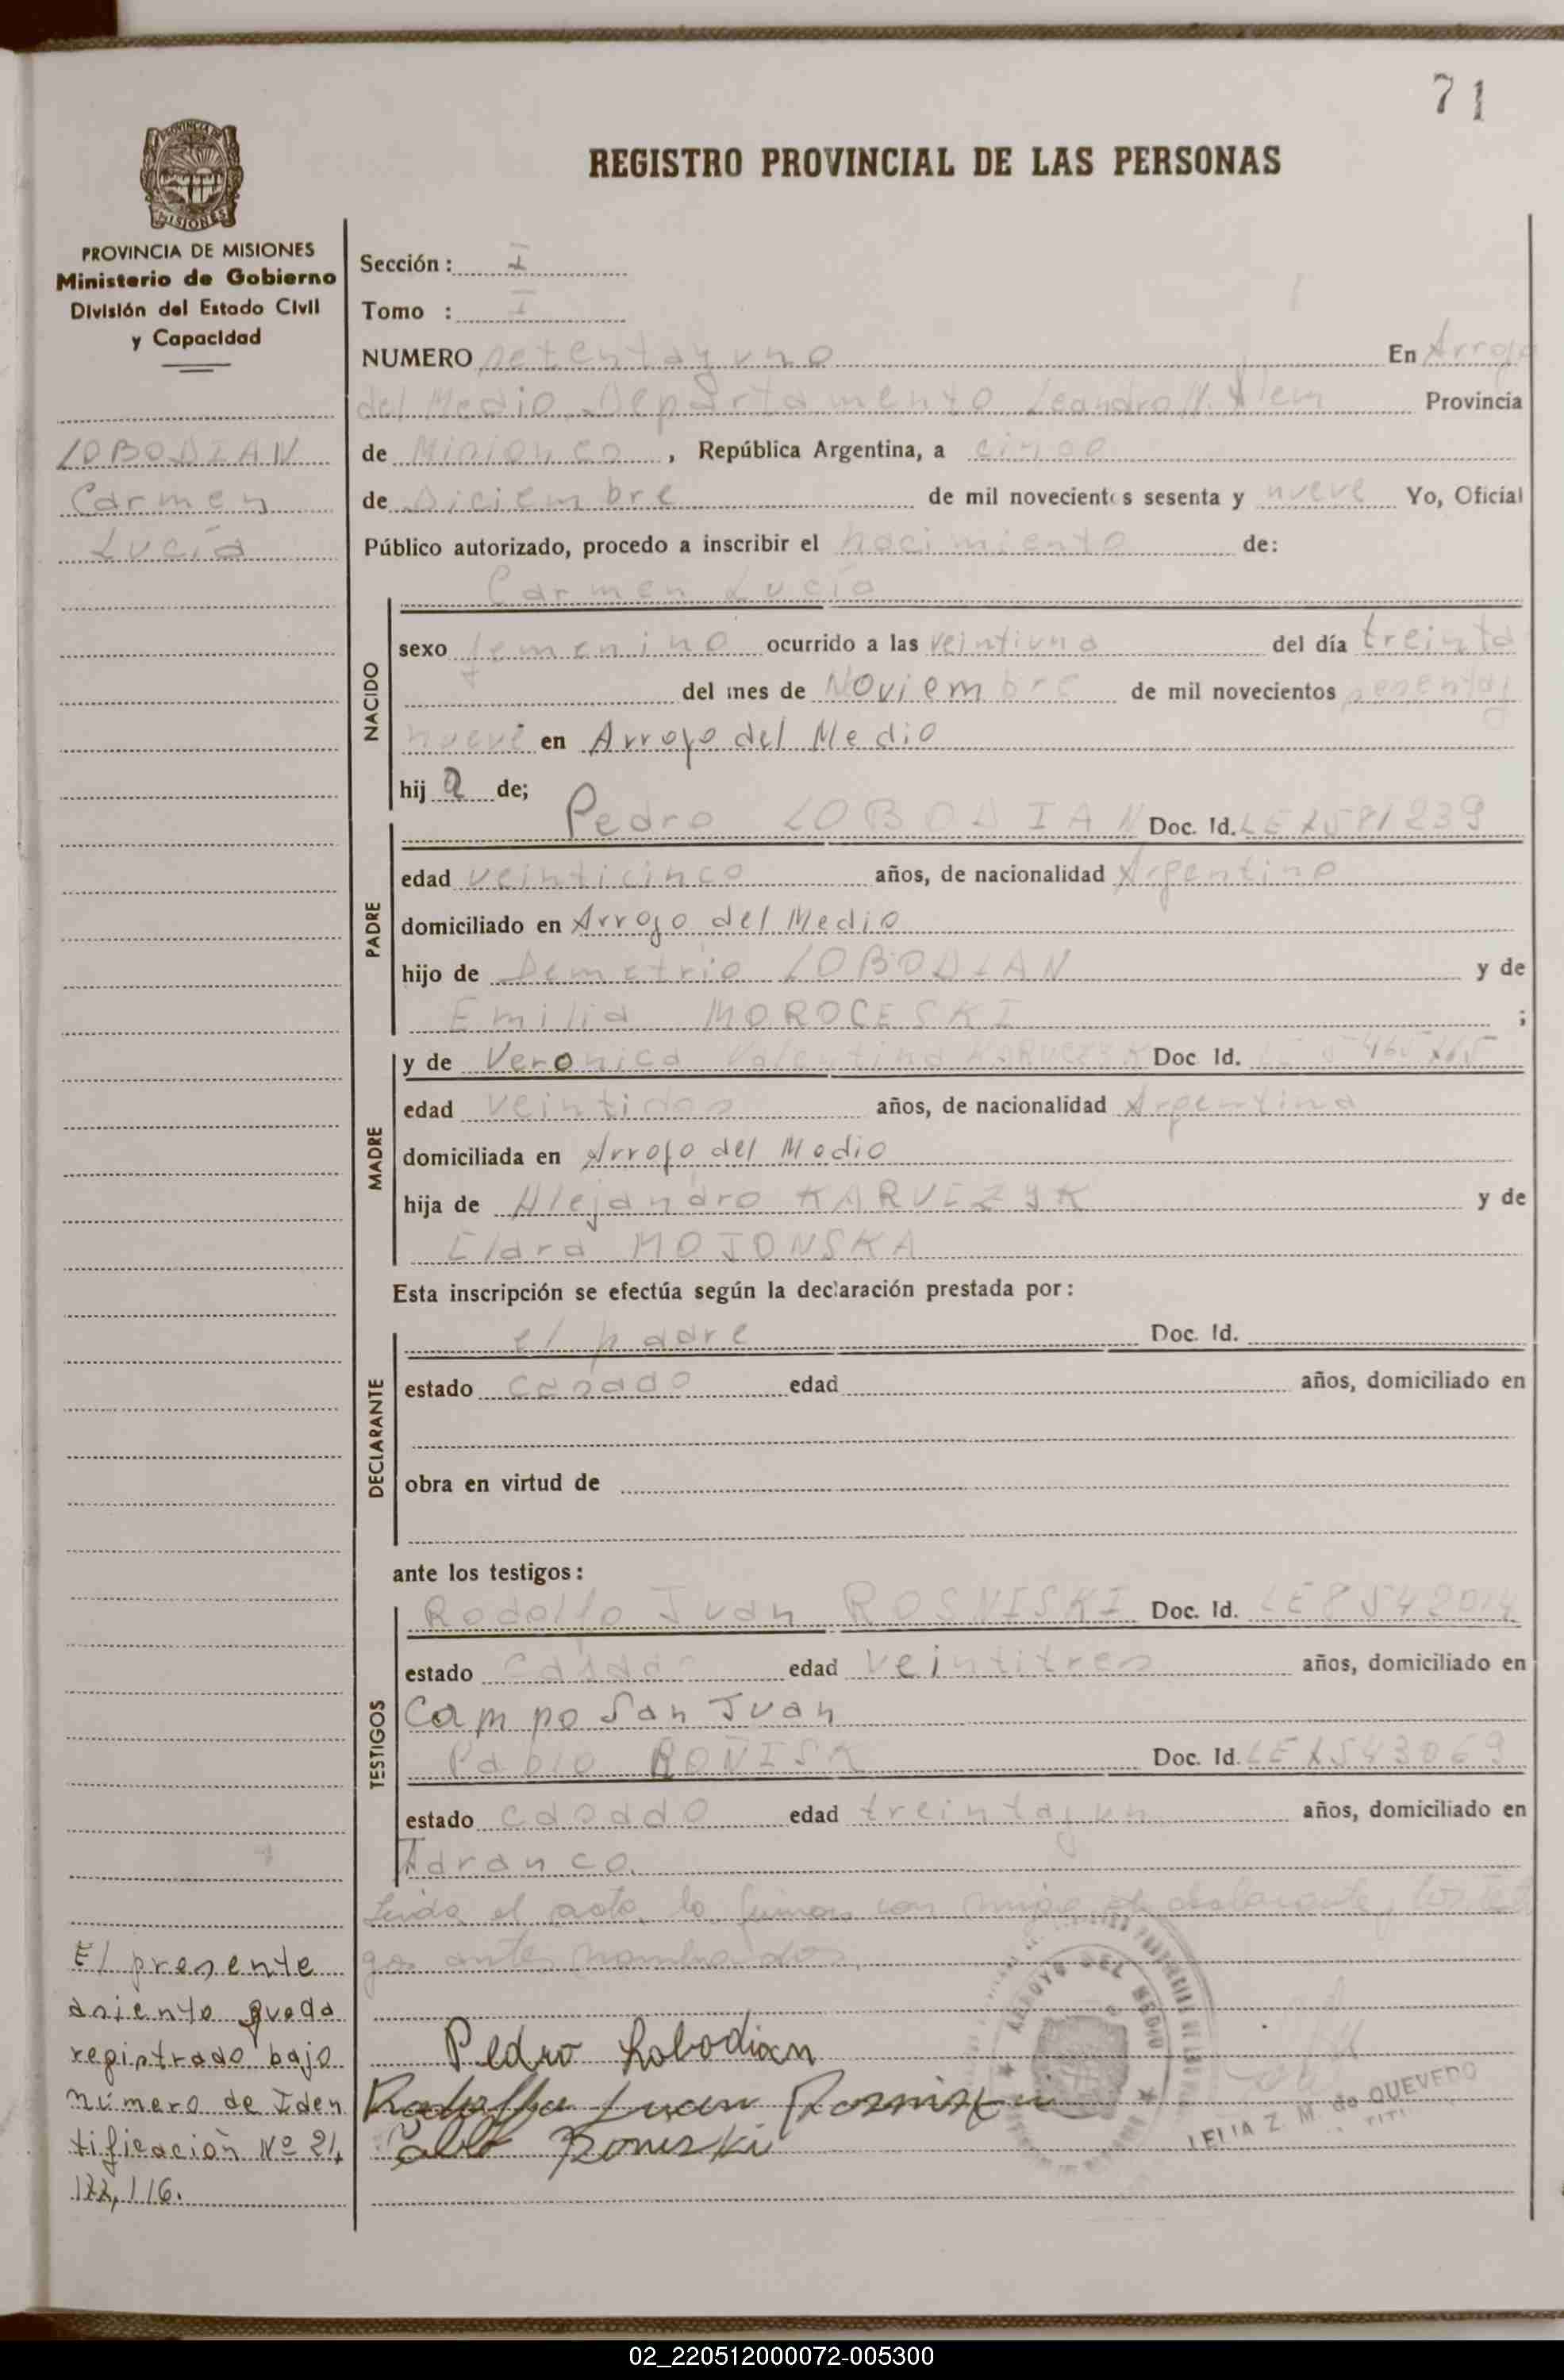 71
REGISTRO PROVINCIAL DE LAS PERSONAS
PROVINCIA DE MISIONES
Ministerio de Gobierno
División del Estado Civil
y Capacidad
LOBODIAN
Carmen
Lucía
El presente
asiento queda
registrado bajo
número de Iden
tificación Nº 21,
122,116.
Sección: I
Tomo : I
NUMERO setenta y uno En Arroyo
del Medio, Departamento Leandro N. Alem Provincia
de Misiones, República Argentina, a cinco
de Diciembre de mil novecientos sesenta y nueve Yo, Oficial
Público autorizado, procedo a inscribir el nacimiento de:
Carmen Lucía
NACIDO
sexo femenino ocurrido a las veintiuna del día treinta
del mes de Noviembre de mil novecientos sesenta y
nueve en Arroyo del Medio
hij a de;
PADRE
Pedro LOBODIAN Doc. Id. LE 7581239
edad veinticinco años, de nacionalidad Argentino
domiciliado en Arroyo del Medio
hijo de Demetrio LOBODIAN y de
Emilia MOROCESKI ;
MADRE
y de Veronica Valentina Doc Id.
edad veintidos años, de nacionalidad Argentina
domiciliada en Arroyo del Medio
hija de Alejandro KARVEZYK y de
Clara MOJONSKA
Esta inscripción se efectúa según la declaración prestada por:
DECLARANTE
el padre Doc. Id.
estado casado edad años, domiciliado en
obra en virtud de
ante los testigos:
TESTIGOS
Rodolfo Juan ROSNISKI Doc. Id. LE 8542014
estado casado edad veintitres años, domiciliado en
Campo San Juan
Pablo ROÑISK Doc. Id. LE 7543069
estado casado edad treinta y un años, domiciliado en
Taranco.
Leida el acta, la firman con migo el declarante y los testi
gos antes nombrados.
Pedro Lobodian
Rodolfo Juan Rosniski
Pablo Roniski
ARROYO DEL MEDIO
LELIA Z. M. de QUEVEDO
02_220512000072-005300